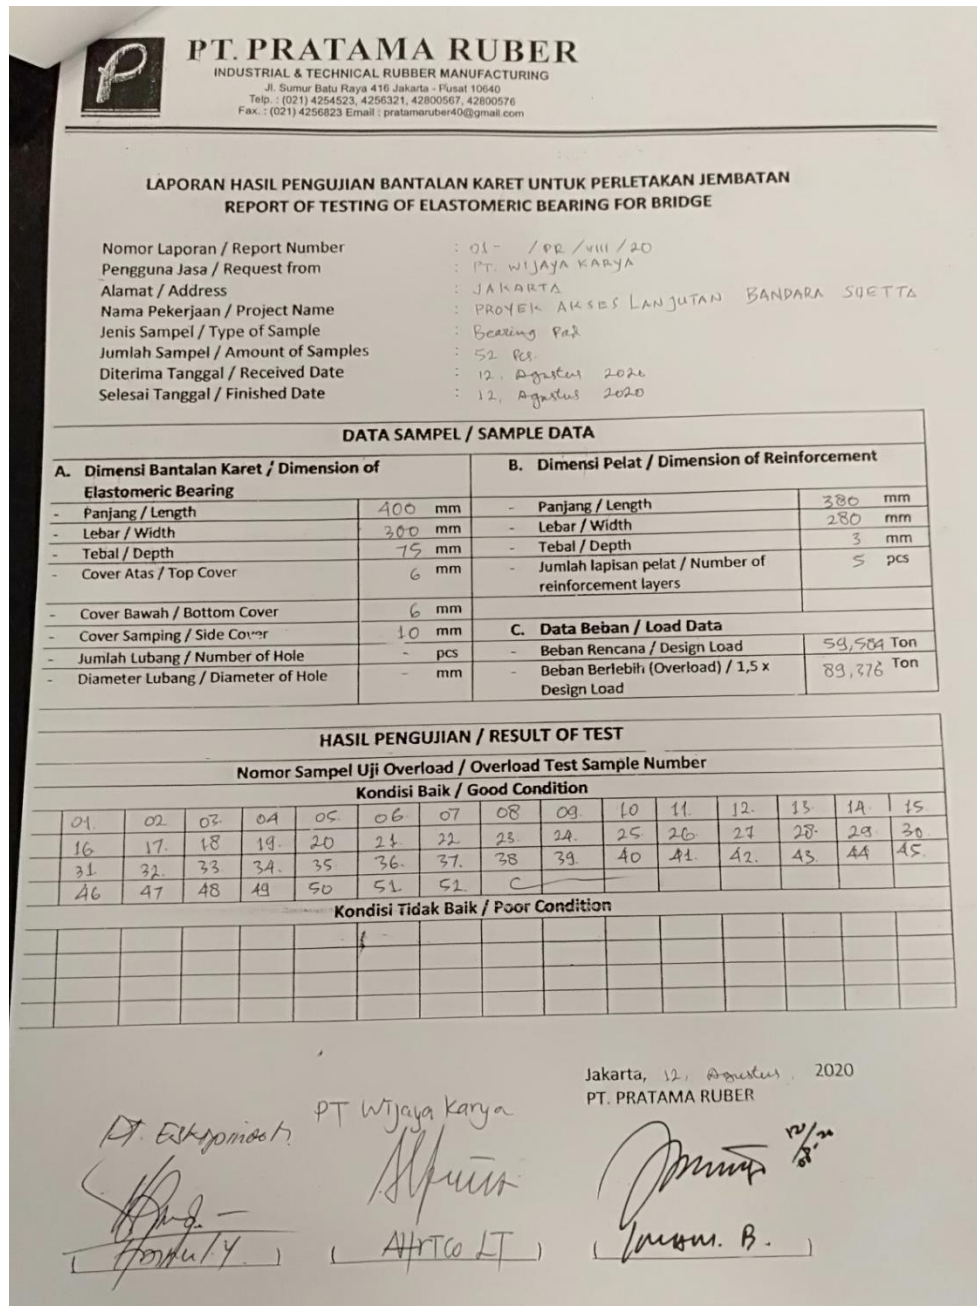 PT. PRATAMA RUBER
INDUSTRIAL & TECHNICAL RUBBER MANUFACTURING
Jl. Sumur Batu Raya 416 Jakarta - Pusat 10640
Telp. : (021) 4254523, 4256321, 42800567, 42800576
Fax. : (021) 4256823 Email : pratamaruber40@gmail.com
LAPORAN HASIL PENGUJIAN BANTALAN KARET UNTUK PERLETAKAN JEMBATAN
REPORT OF TESTING OF ELASTOMERIC BEARING FOR BRIDGE
Nomor Laporan / Report Number : 01- /PR/VIII/20
Pengguna Jasa / Request from : PT. WIJAYA KARYA
Alamat / Address : JAKARTA
Nama Pekerjaan / Project Name : PROYEK AKSES LANJUTAN BANDARA SOETTA
Jenis Sampel / Type of Sample : Bearing Pad
Jumlah Sampel / Amount of Samples : 52 Pcs.
Diterima Tanggal / Received Date : 12, Agustus 2020
Selesai Tanggal / Finished Date : 12, Agustus 2020
DATA SAMPEL / SAMPLE DATA
A. Dimensi Bantalan Karet / Dimension of Elastomeric Bearing
- Panjang / Length 400 mm
- Lebar / Width 300 mm
- Tebal / Depth 75 mm
- Cover Atas / Top Cover 6 mm
- Cover Bawah / Bottom Cover 6 mm
- Cover Samping / Side Cover 10 mm
- Jumlah Lubang / Number of Hole - pcs
- Diameter Lubang / Diameter of Hole - mm
B. Dimensi Pelat / Dimension of Reinforcement
- Panjang / Length 380 mm
- Lebar / Width 280 mm
- Tebal / Depth 3 mm
- Jumlah lapisan pelat / Number of reinforcement layers 5 pcs
C. Data Beban / Load Data
- Beban Rencana / Design Load 59,584 Ton
- Beban Berlebih (Overload) / 1,5 x Design Load 89,376 Ton
HASIL PENGUJIAN / RESULT OF TEST
Nomor Sampel Uji Overload / Overload Test Sample Number
Kondisi Baik / Good Condition
01. 02 03. 04 05. 06. 07 08 09. 10 11. 12. 13. 14. 15.
16 17. 18 19. 20 21 22. 23. 24. 25 26. 27 28. 29. 30.
31 32. 33 34. 35 36. 37. 38 39. 40 41. 42. 43. 44 45.
46 47 48 49 50 51. 52.
Kondisi Tidak Baik / Poor Condition
Jakarta, 12, Agustus, 2020
PT. PRATAMA RUBER
PT Wijaya Karya
12/08-20
Imam. B.